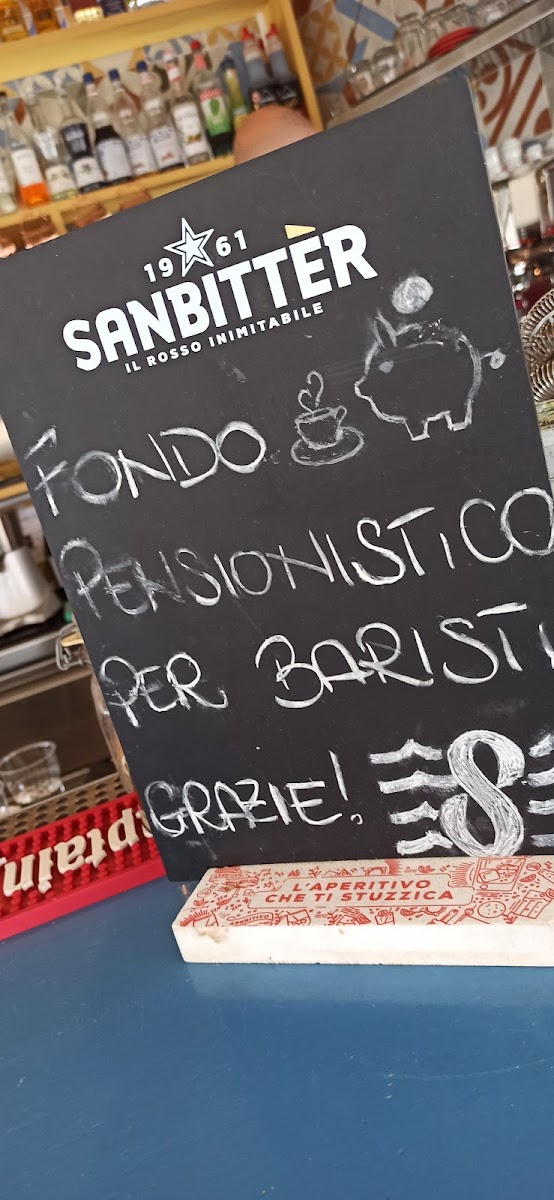 19 61
SANBITTÈR
IL ROSSO INIMITABILE
FONDO
PENSIONISTICO
PER BARISTI
GRAZIE! S
L'APERITIVO
CHE TI STUZZICA
ptain